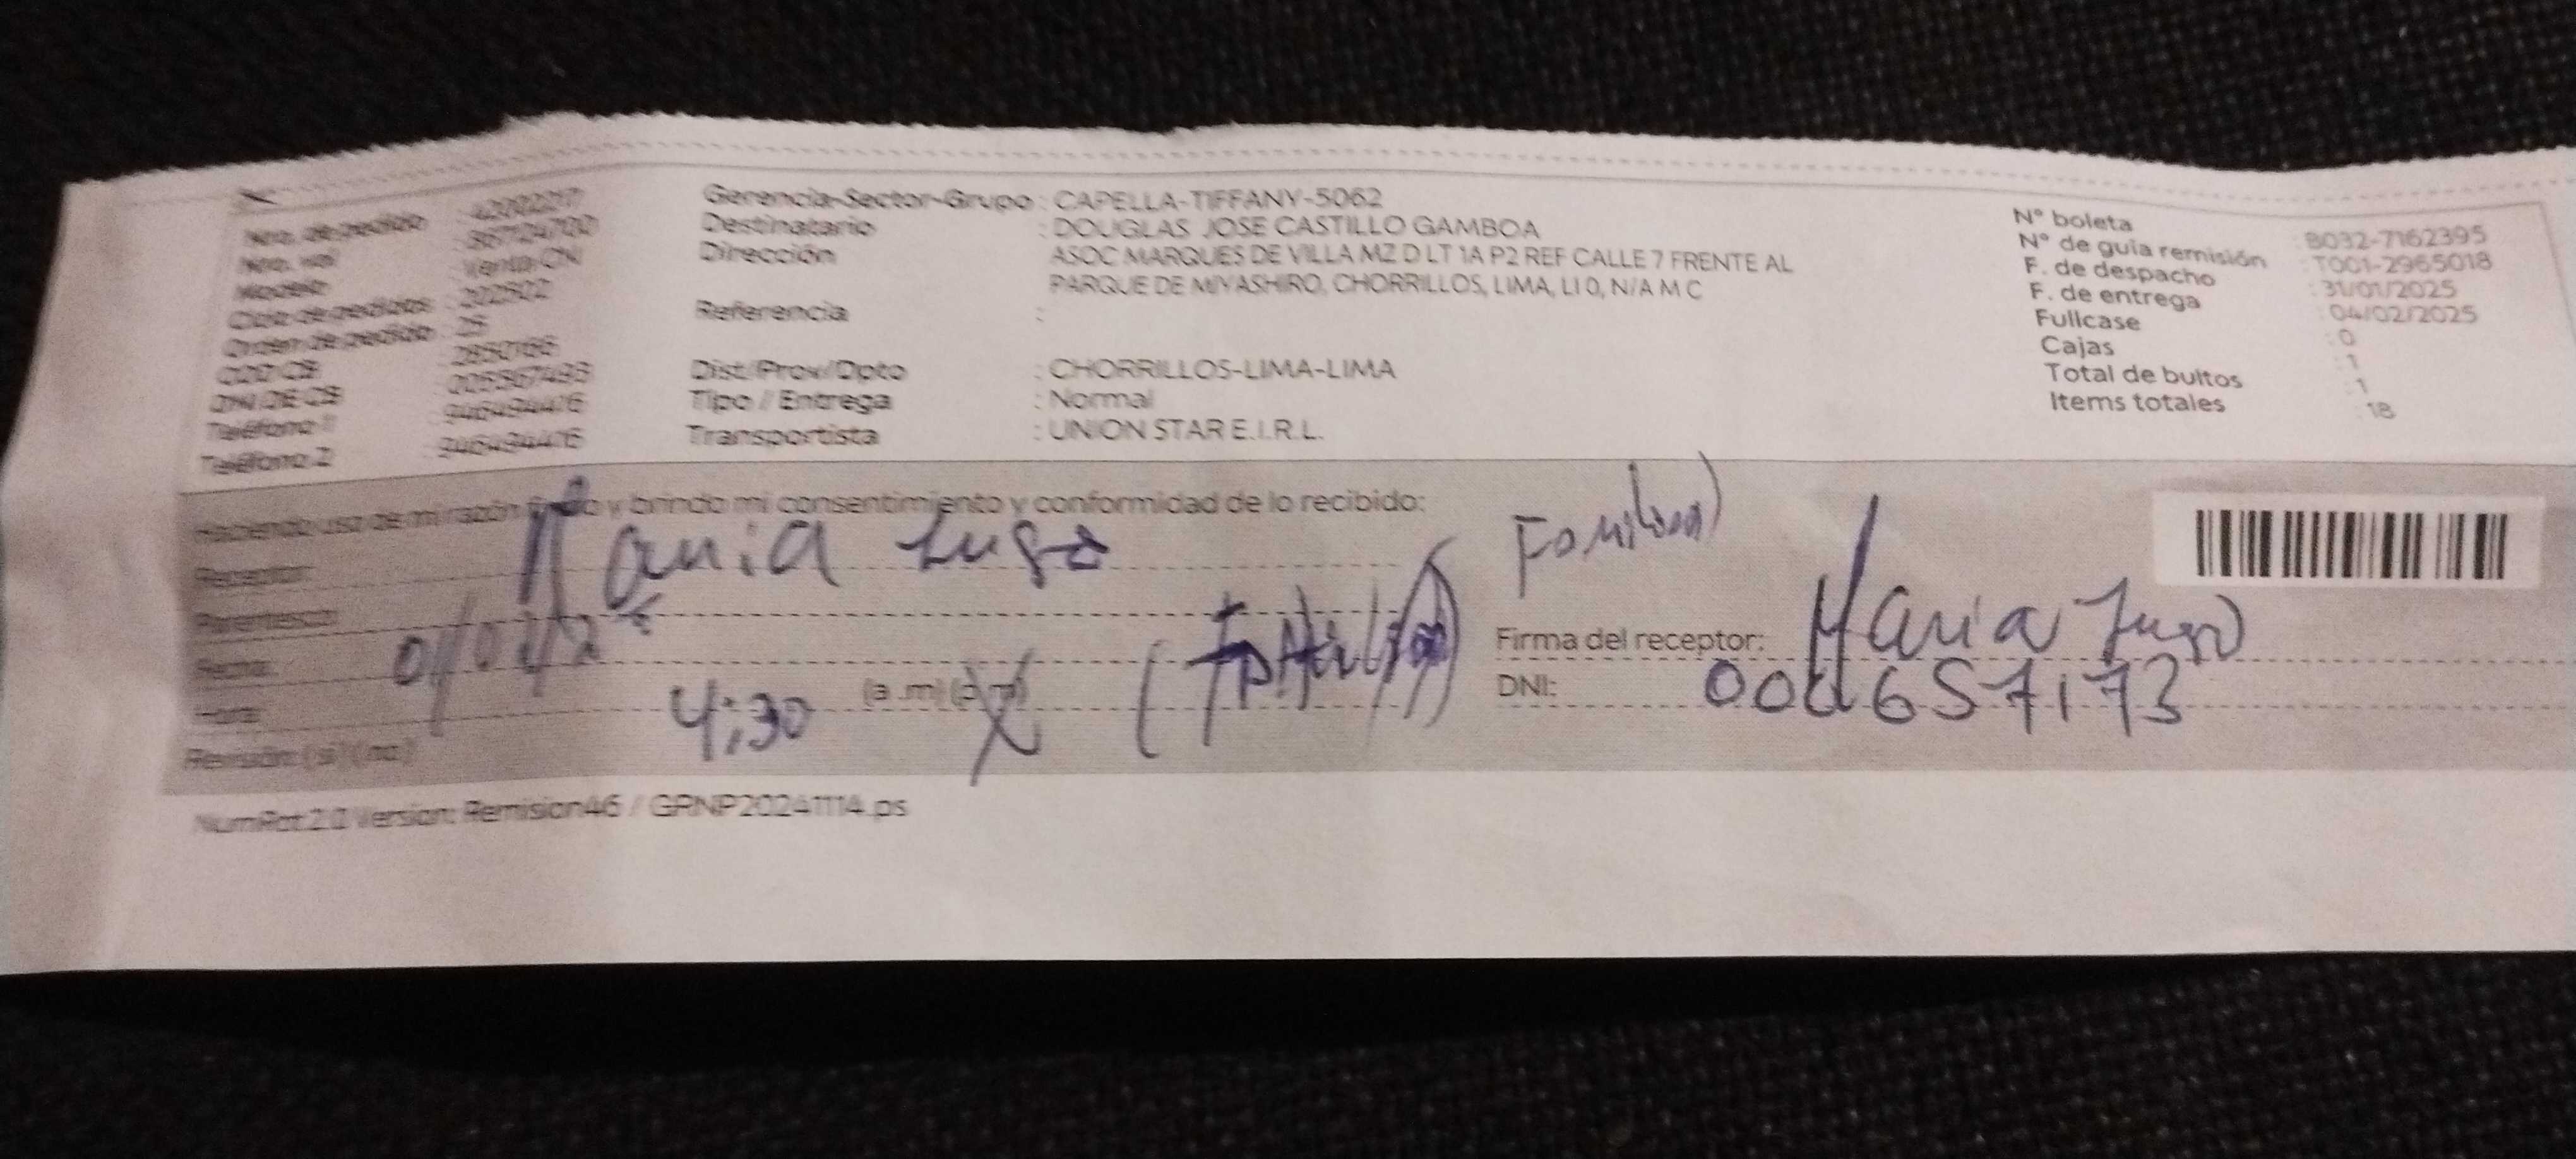 Nro. de pedido
Nro. val
Modelo : Venta CN
Ciclo de pedidos : 202502
Orden de pedido : 25
COD CB : 2850166
DNI DE CB
Teléfono 1 : 946494416
Teléfono 2 : 946494416
Gerencia-Sector-Grupo : CAPELLA-TIFFANY-5062
Destinatario : DOUGLAS JOSE CASTILLO GAMBOA
Dirección : ASOC MARQUES DE VILLA MZ D LT 1A P2 REF CALLE 7 FRENTE AL
PARQUE DE MIYASHIRO, CHORRILLOS, LIMA, LI 0, N/A M C
Referencia :
Dist/Prov/Dpto : CHORRILLOS-LIMA-LIMA
Tipo / Entrega : Normal
Transportista : UNION STAR E.I.R.L.
N° boleta : B032-7162395
N° de guía remisión : T001-2965018
F. de despacho : 31/01/2025
F. de entrega : 04/02/2025
Fullcase : 0
Cajas : 1
Total de bultos : 1
Items totales : 18
Haciendo uso de mi razón y brindo mi consentimiento y conformidad de lo recibido:
Receptor: Maria Lugo
Parentesco:
Fecha:
Hora: 4:30 (a.m) (p.m)
Revisión: (si) (no)
Familiar)
Firma del receptor: Maria Lugo
DNI:
NumRot 2.0 Version: Remision46 / GRNP20241114.ps